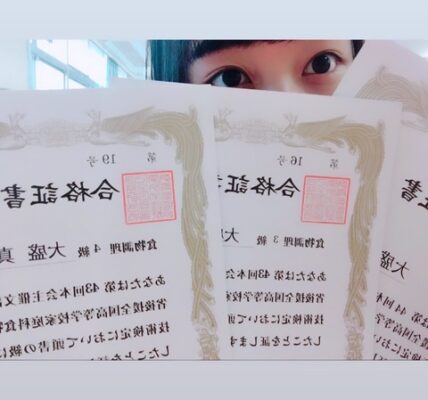 第 19 号
合格証書
食物調理 4 級
大盛 真
あなたは第43回本会主催文
省後援全国高等学校家庭科食物
技術検定において頭書の級に
したことを証します
第 16 号
合格証
食物調理 3 級
大
あなたは第43回本会
省後援全国高等学校家
技術検定において頭
したことを証します
大
あなたは第 44 回本
省後援全国高等
技術検定に